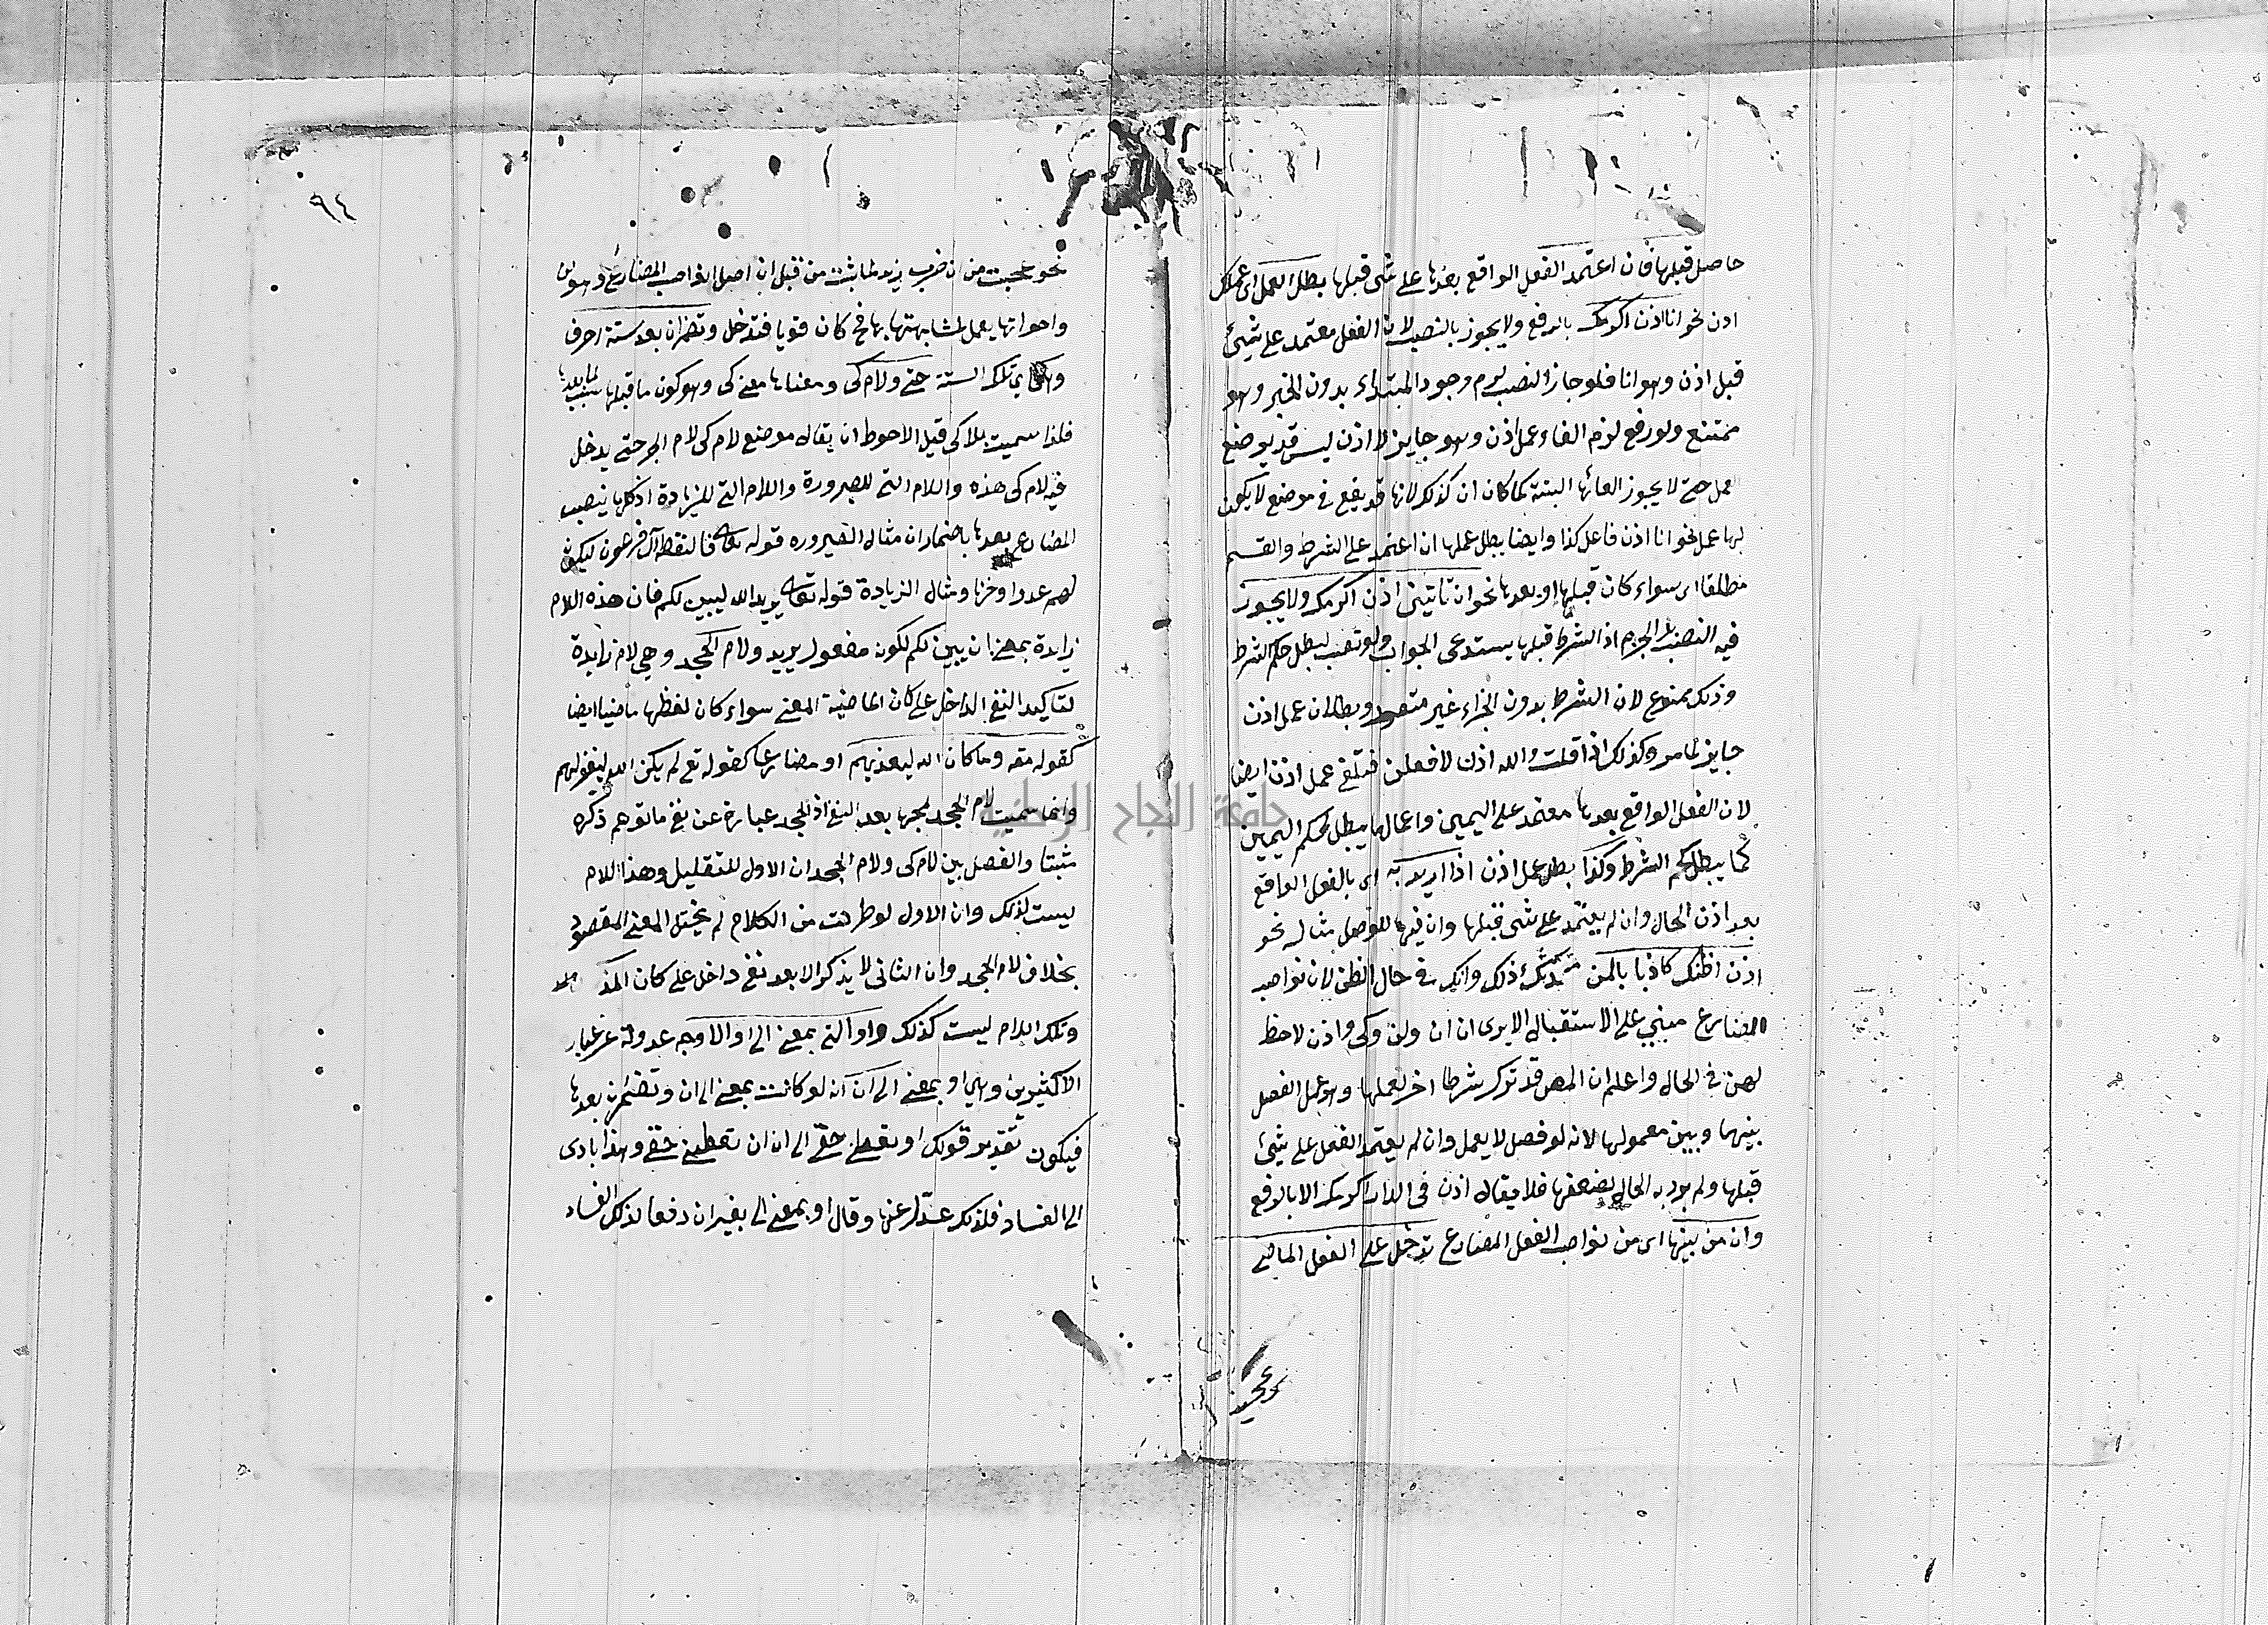 حاصل قبلها فان اعتمد الفعل الواقع بعدها على شئ قبلها بطل العمل اى عمل
اذن نحو انا اذن اكرمك بالرفع ولا يجوز بالنصب لان الفعل معتمد على شئ
قبل اذن وهو انا فلو جاز النصب لزم وجود المبتداء بدون الخبر وهو
ممتنع ولو رفع لزم الغاء عمل اذن وهو جايز لا اذن ليس قد يوضع
العمل حتى لا يجوز الغائها البتة كما كان ان كذلك لانها قد يقع فى موضع لا يكون
لها عمل نحو انا اذن فاعل كذا وايضا يطل عملها ان اعتمد على الشرط والقسم
مطلقا اى سواء كان قبلها او بعدها نحو ان تاتينى اذن اكرمك ولا يجوز
فيه النصب بل الجزم اذ الشرط قبلها يستدعى الجواب ولو نصب لبطل حكم الشرط
وذلك ممنوع لان الشرط بدون الجزاء غير متصور وبطلان عمل اذن
جايز لما مر وكذلك اذا قلت والله اذن لافعلن فتلغى عمل اذن ايضا
لان الفعل الواقع بعدها معتمد على اليمين واعمالها يبطل حكم اليمين
كما يبطل حكم الشرط وكذا بطل عمل اذن اذا اريد به اى بالفعل الواقع
بعد اذن الحال وان لم يعتمد على شئ قبلها وان فيها للوصل مثاله نحو
اذن اظنك كاذبا بالمن حدثك ذلك وانك فى حال الظن لان نواصب
المضارع مبنى على الاستقبال الا يرى ان ان ولن وكى واذن لا حظ
لهن فى الحال واعلم ان المص قد ترك شرطا اخر لعملها وهو عمل الفصل
بينها وبين معمولها لانه لو فصل لا يعمل وان لم يعتمد الفعل على شئ
قبلها ولم يرد به الحال لضعفها فلا يقال اذن فى الدار اكرمك الا بالرفع
وان من بينها اى من نواصب الفعل المضارع تدخل على الفعل الماضى
نحو عجبت
٩٤
نحو عجبت من ان ضرب زيد لما ثبت من قبل ان اصل نواصب المضارع وهو ان
واخواتها يعمل لمشابهتها بها كان قويا فتدخل وتضمر ان بعد ستة احرف
وهى اى تلك الستة حتى ولام كى ومعناها معنى كى وهو كون ما قبلها سببا لما بعدها
فلذا سميت بلام كى قيل الاحوط ان يقال موضع لام كى لام الجر حتى يدخل
فيه لام كى هذه واللام التى للصيرورة واللام التى للزيادة اذ كلها ينصب
المضارع بعدها باضمار ان مثال الصيرورة قوله تعالى فالتقطه آل فرعون ليكون
لهم عدوا وحزنا ومثال الزيادة قوله تعالى يريد الله ليبين لكم فان هذه اللام
زايدة بمعنى ان يبين لكم لكونه مفعول يريد ولام الجحد وهى لام زايدة
لتاكيد النفى الداخل على كان الماضية المعنى سواء كان لفظها ماضيا ايضا
كقوله تعه وما كان الله ليعذبهم او مضارعا كقوله تع لم يكن الله ليغفر لهم
وانما سميت لام الجحد لمجيها بعد النفى اذ الجحد عبارة عن نفى ما توهم ذكره
مثبتا والفصل بين لام كى ولام الجحد ان الاول للتعليل وهذا اللام
ليست كذلك وان الاول لو طرحت من الكلام لم يختل المعنى المقصود
بخلاف لام الجحد وان الثانى لا يذكر الا بعد نفى داخل على كان
وتلك اللام ليست كذلك واو التى بمعنى الى او الا وجه عدوله عن عبارة
الاكثرين وهى او بمعنى الى ان انه لو كانت بمعنى الى ان وتضمر ان بعدها
فيكون تقدير قولك او تعطى حقى الى ان ان تعطينى حقى وهذا بادى
الى الفساد فلذلك عدل عنها وقال او بمعنى الى بغير ان دفعا لذلك الفساد
جامعة النجاح الوطنية